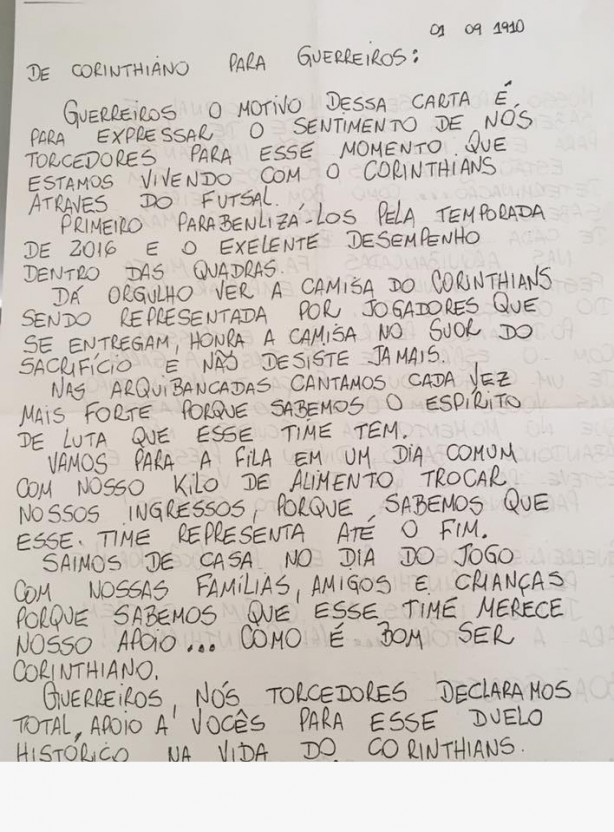 01 09 1910
DE CORINTHIANO PARA GUERREIROS:
GUERREIROS O MOTIVO DESSA CARTA É
PARA EXPRESSAR O SENTIMENTO DE NÓS
TORCEDORES PARA ESSE MOMENTO QUE
ESTAMOS VIVENDO COM O CORINTHIANS
ATRAVES DO FUTSAL.
PRIMEIRO PARABENLIZA-LOS PELA TEMPORADA
DE 2016 E O EXELENTE DESEMPENHO
DENTRO DAS QUADRAS.
DÁ ORGULHO VER A CAMISA DO CORINTHIANS
SENDO REPRESENTADA POR JOGADORES QUE
SE ENTREGAM, HONRA A CAMISA NO SUOR DO
SACRIFÍCIO E NÃO DESISTE JAMAIS.
NAS ARQUIBANCADAS CANTAMOS CADA VEZ
MAIS FORTE PORQUE SABEMOS O ESPÍRITO
DE LUTA QUE ESSE TIME TEM.
VAMOS PARA A FILA EM UM DIA COMUM
COM NOSSO KILO DE ALIMENTO, TROCAR
NOSSOS INGRESSOS, PORQUE SABEMOS QUE
ESSE TIME REPRESENTA ATÉ O FIM.
SAIMOS DE CASA NO DIA DO JOGO
COM NOSSAS FAMÍLIAS, AMIGOS E CRIANÇAS
PORQUE SABEMOS QUE ESSE TIME MERECE
NOSSO APOIO... COMO É BOM SER
CORINTHIANO.
GUERREIROS, NÓS TORCEDORES DECLARAMOS
TOTAL APOIO A VOCÊS PARA ESSE DUELO
HISTÓRICO NA VIDA DO CORINTHIANS.